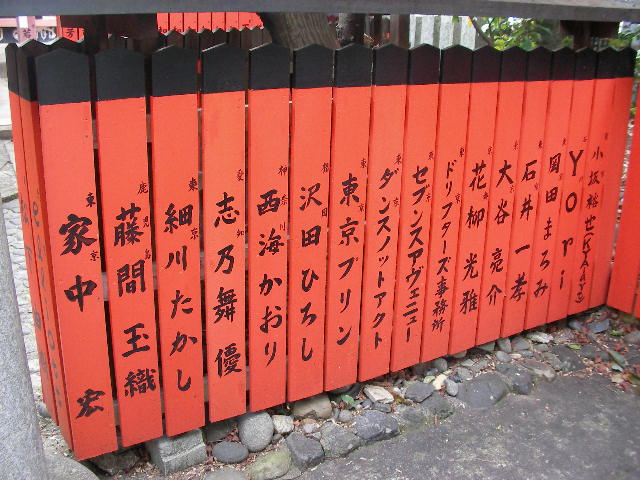 東京 家中 宏
鹿児島 藤間 玉織
東京 細川たかし
愛知 志乃舞 優
神奈川 西海かおり
福岡 沢田ひろし
東京 東京プリン
東京 ダンスノットアクト
東京 セブンスアヴェニュー
東京 ドリフターズ事務所
東京 花柳 光雅
東京 大谷 亮介
東京 石井 一孝
東京 岡田まろみ
Yori
小坂裕世